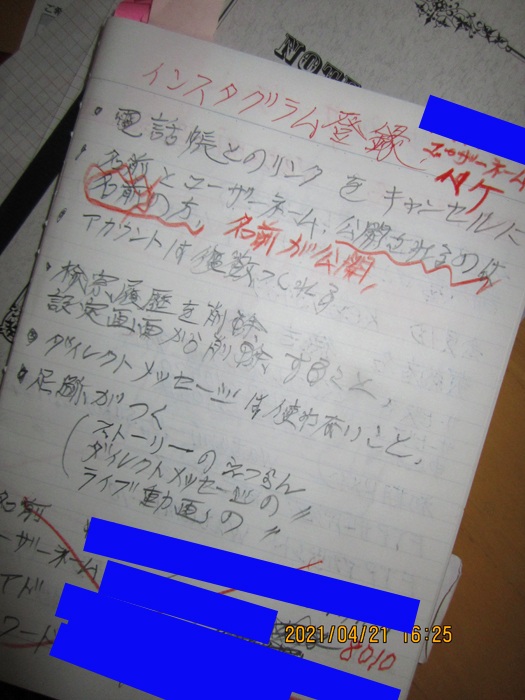 NOTE
インスタグラム登録
ユーザーネーム
・電話帳とのリンクをキャンセルに
・名前とユーザーネーム、公開されるのは
名前の方、名前が公開
・アカウントは複数つくれる
・検索履歴を削除
設定画面から削除すること、
・ダイレクトメッセージは使わないこと、
・足跡がつく
(ストーリーのえつらん
ダイレクトメッセージの〃
ライブ動画の〃
名前
ーザーネーム
2021/04/21 16:25
8010